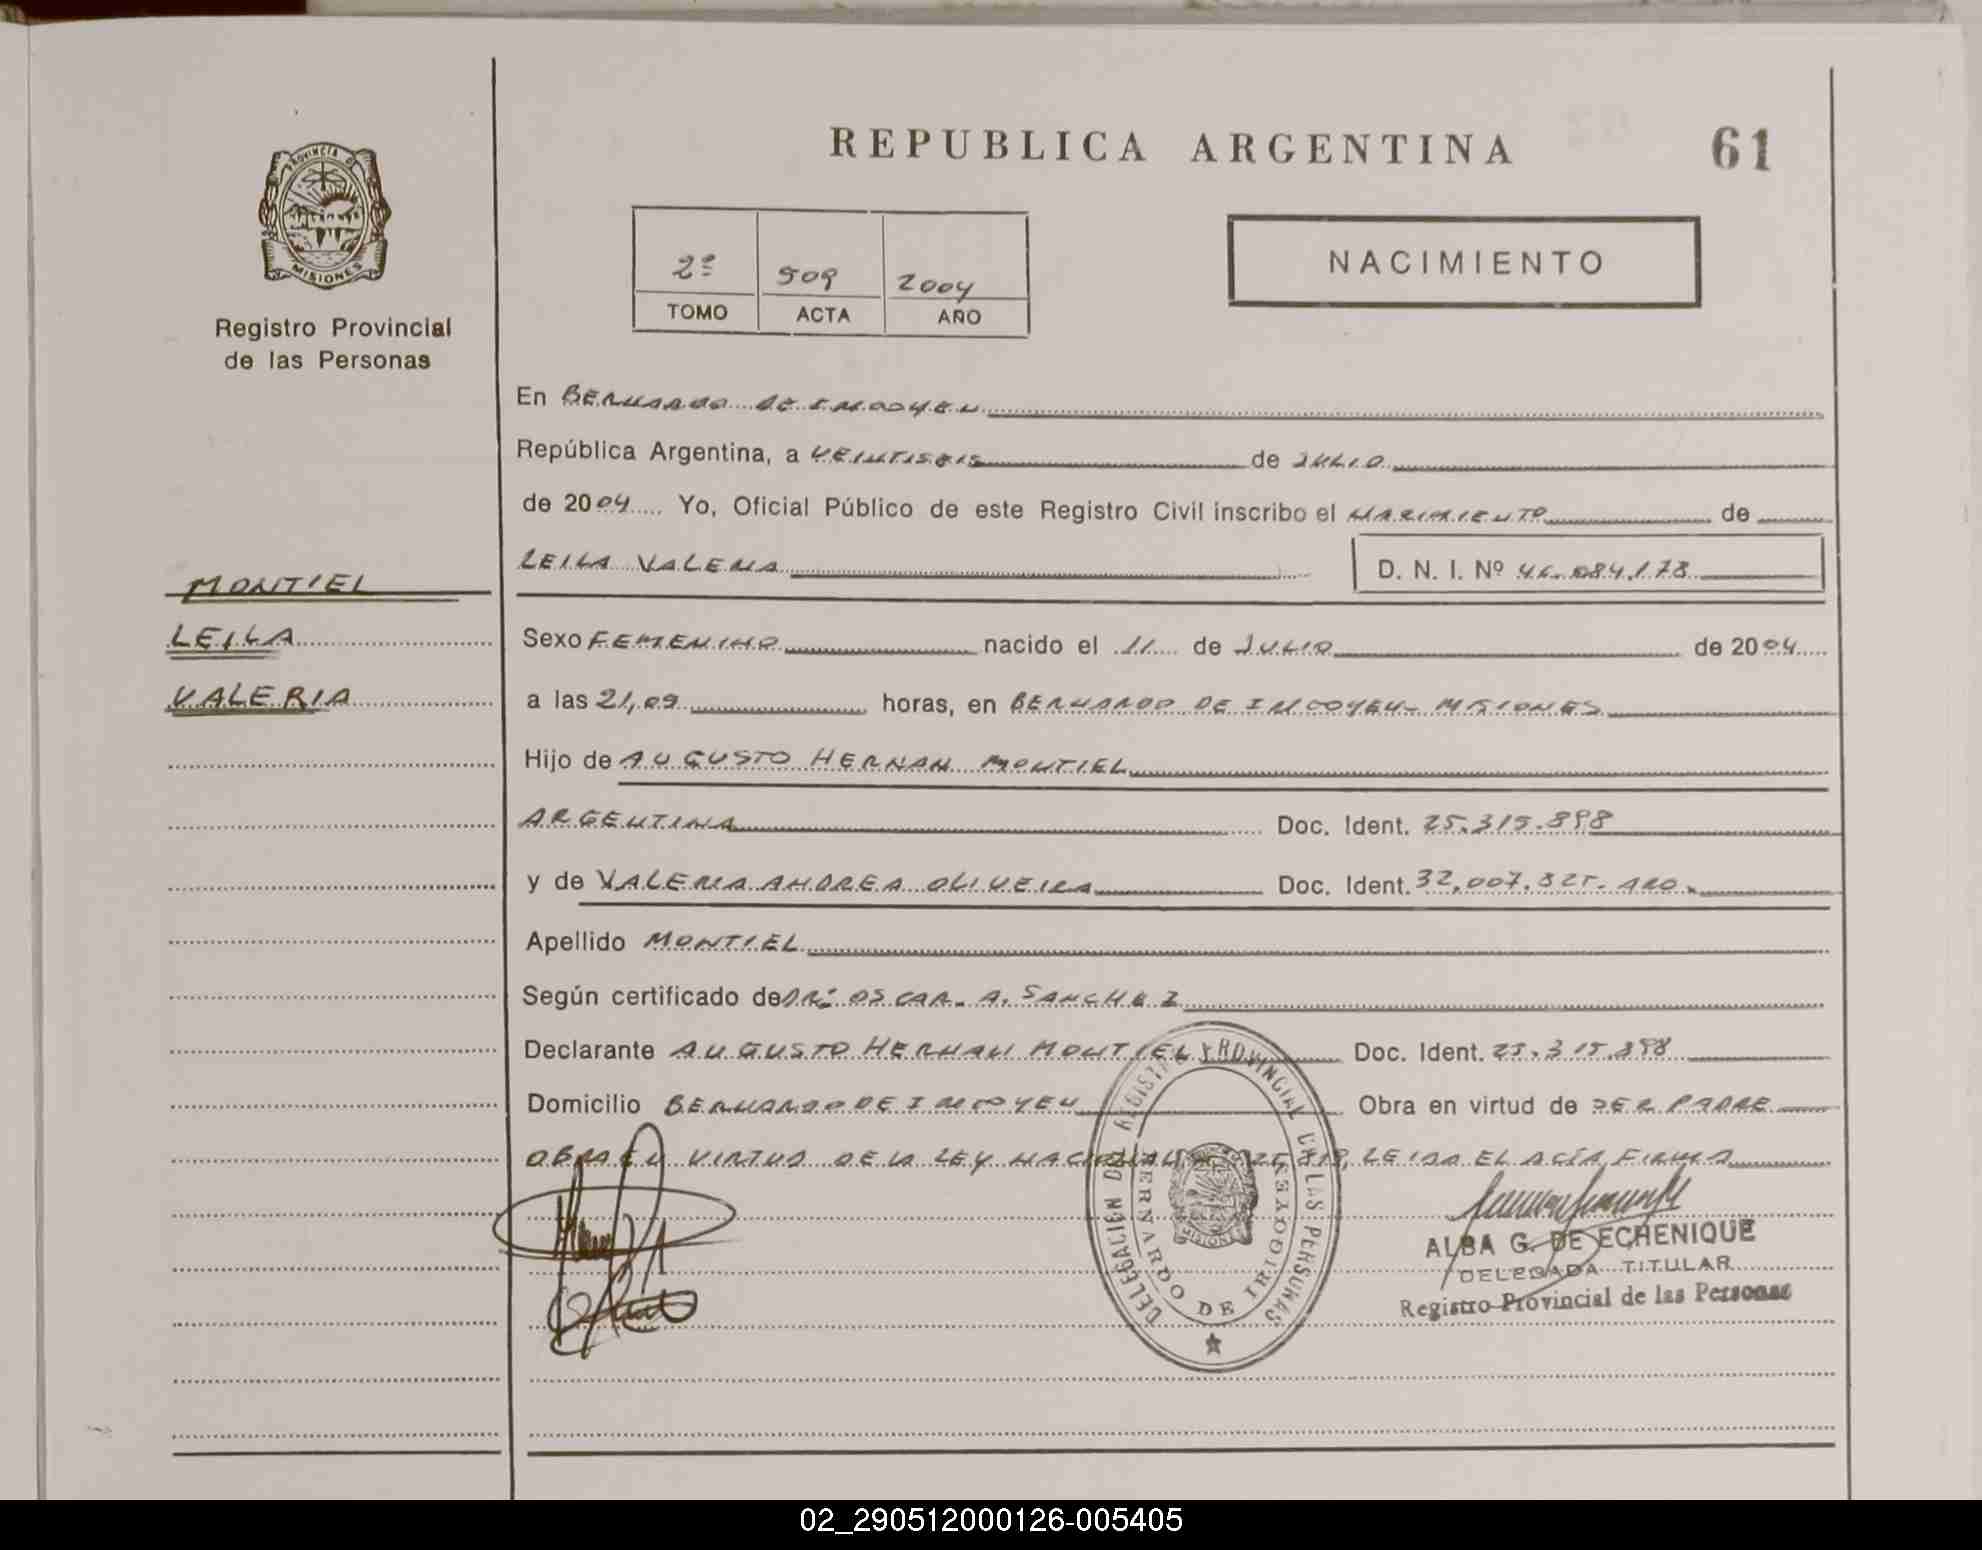 REPUBLICA ARGENTINA
61
PROVINCIA DE
MISIONES
Registro Provincial
de las Personas
2º 509 2004
TOMO ACTA AÑO
NACIMIENTO
En BERNARDO DE IRIGOYEN
República Argentina, a VEINTISEIS de JULIO
de 2004 Yo, Oficial Público de este Registro Civil inscribo el NACIMIENTO de
LEILA VALERIA D. N. I. Nº 46.084.178
MONTIEL
LEILA
VALERIA
Sexo FEMENINO nacido el 11 de JULIO de 2004
a las 21,09 horas, en BERNARDO DE IRIGOYEN - MISIONES
Hijo de AUGUSTO HERNAN MONTIEL
ARGENTINA Doc. Ident. 25.315.898
y de VALERIA ANDREA OLIVEIRA Doc. Ident. 32.007.825. ARG.
Apellido MONTIEL
Según certificado de DR: OSCAR. A. SANCHEZ
Declarante AUGUSTO HERNAN MONTIEL Doc. Ident. 25.315.898
Domicilio BERNARDO DE IRIGOYEN Obra en virtud de SER PADRE
OBRA EN VIRTUD DE LA LEY NACIONAL LEIDA EL ACTA FIRMA
DELEGACION DEL REGISTRO PROVINCIAL DE LAS PERSONAS
BERNARDO DE IRIGOYEN
MISIONES
ALBA G. DE ECHENIQUE
DELEGADA TITULAR
Registro Provincial de las Personas
02_290512000126-005405